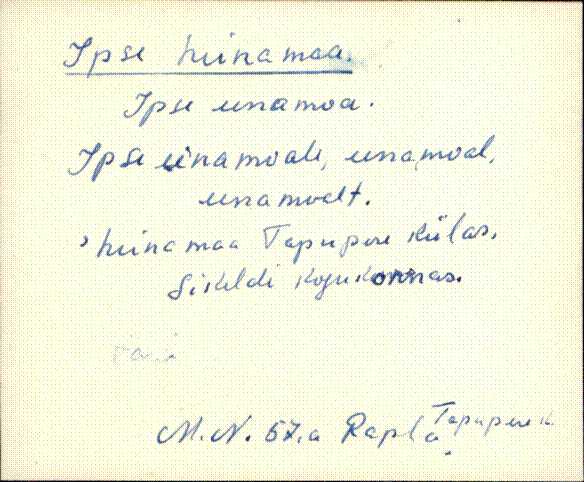 Ipse heinamaa.
Ipse einamoa.
Ipse einamoale, einamoal,
einamoalt.
> heinamaa Tapupere külas.
Sikeldi kogukonnas.
M.N. 57.a Rapla Tapupere k.